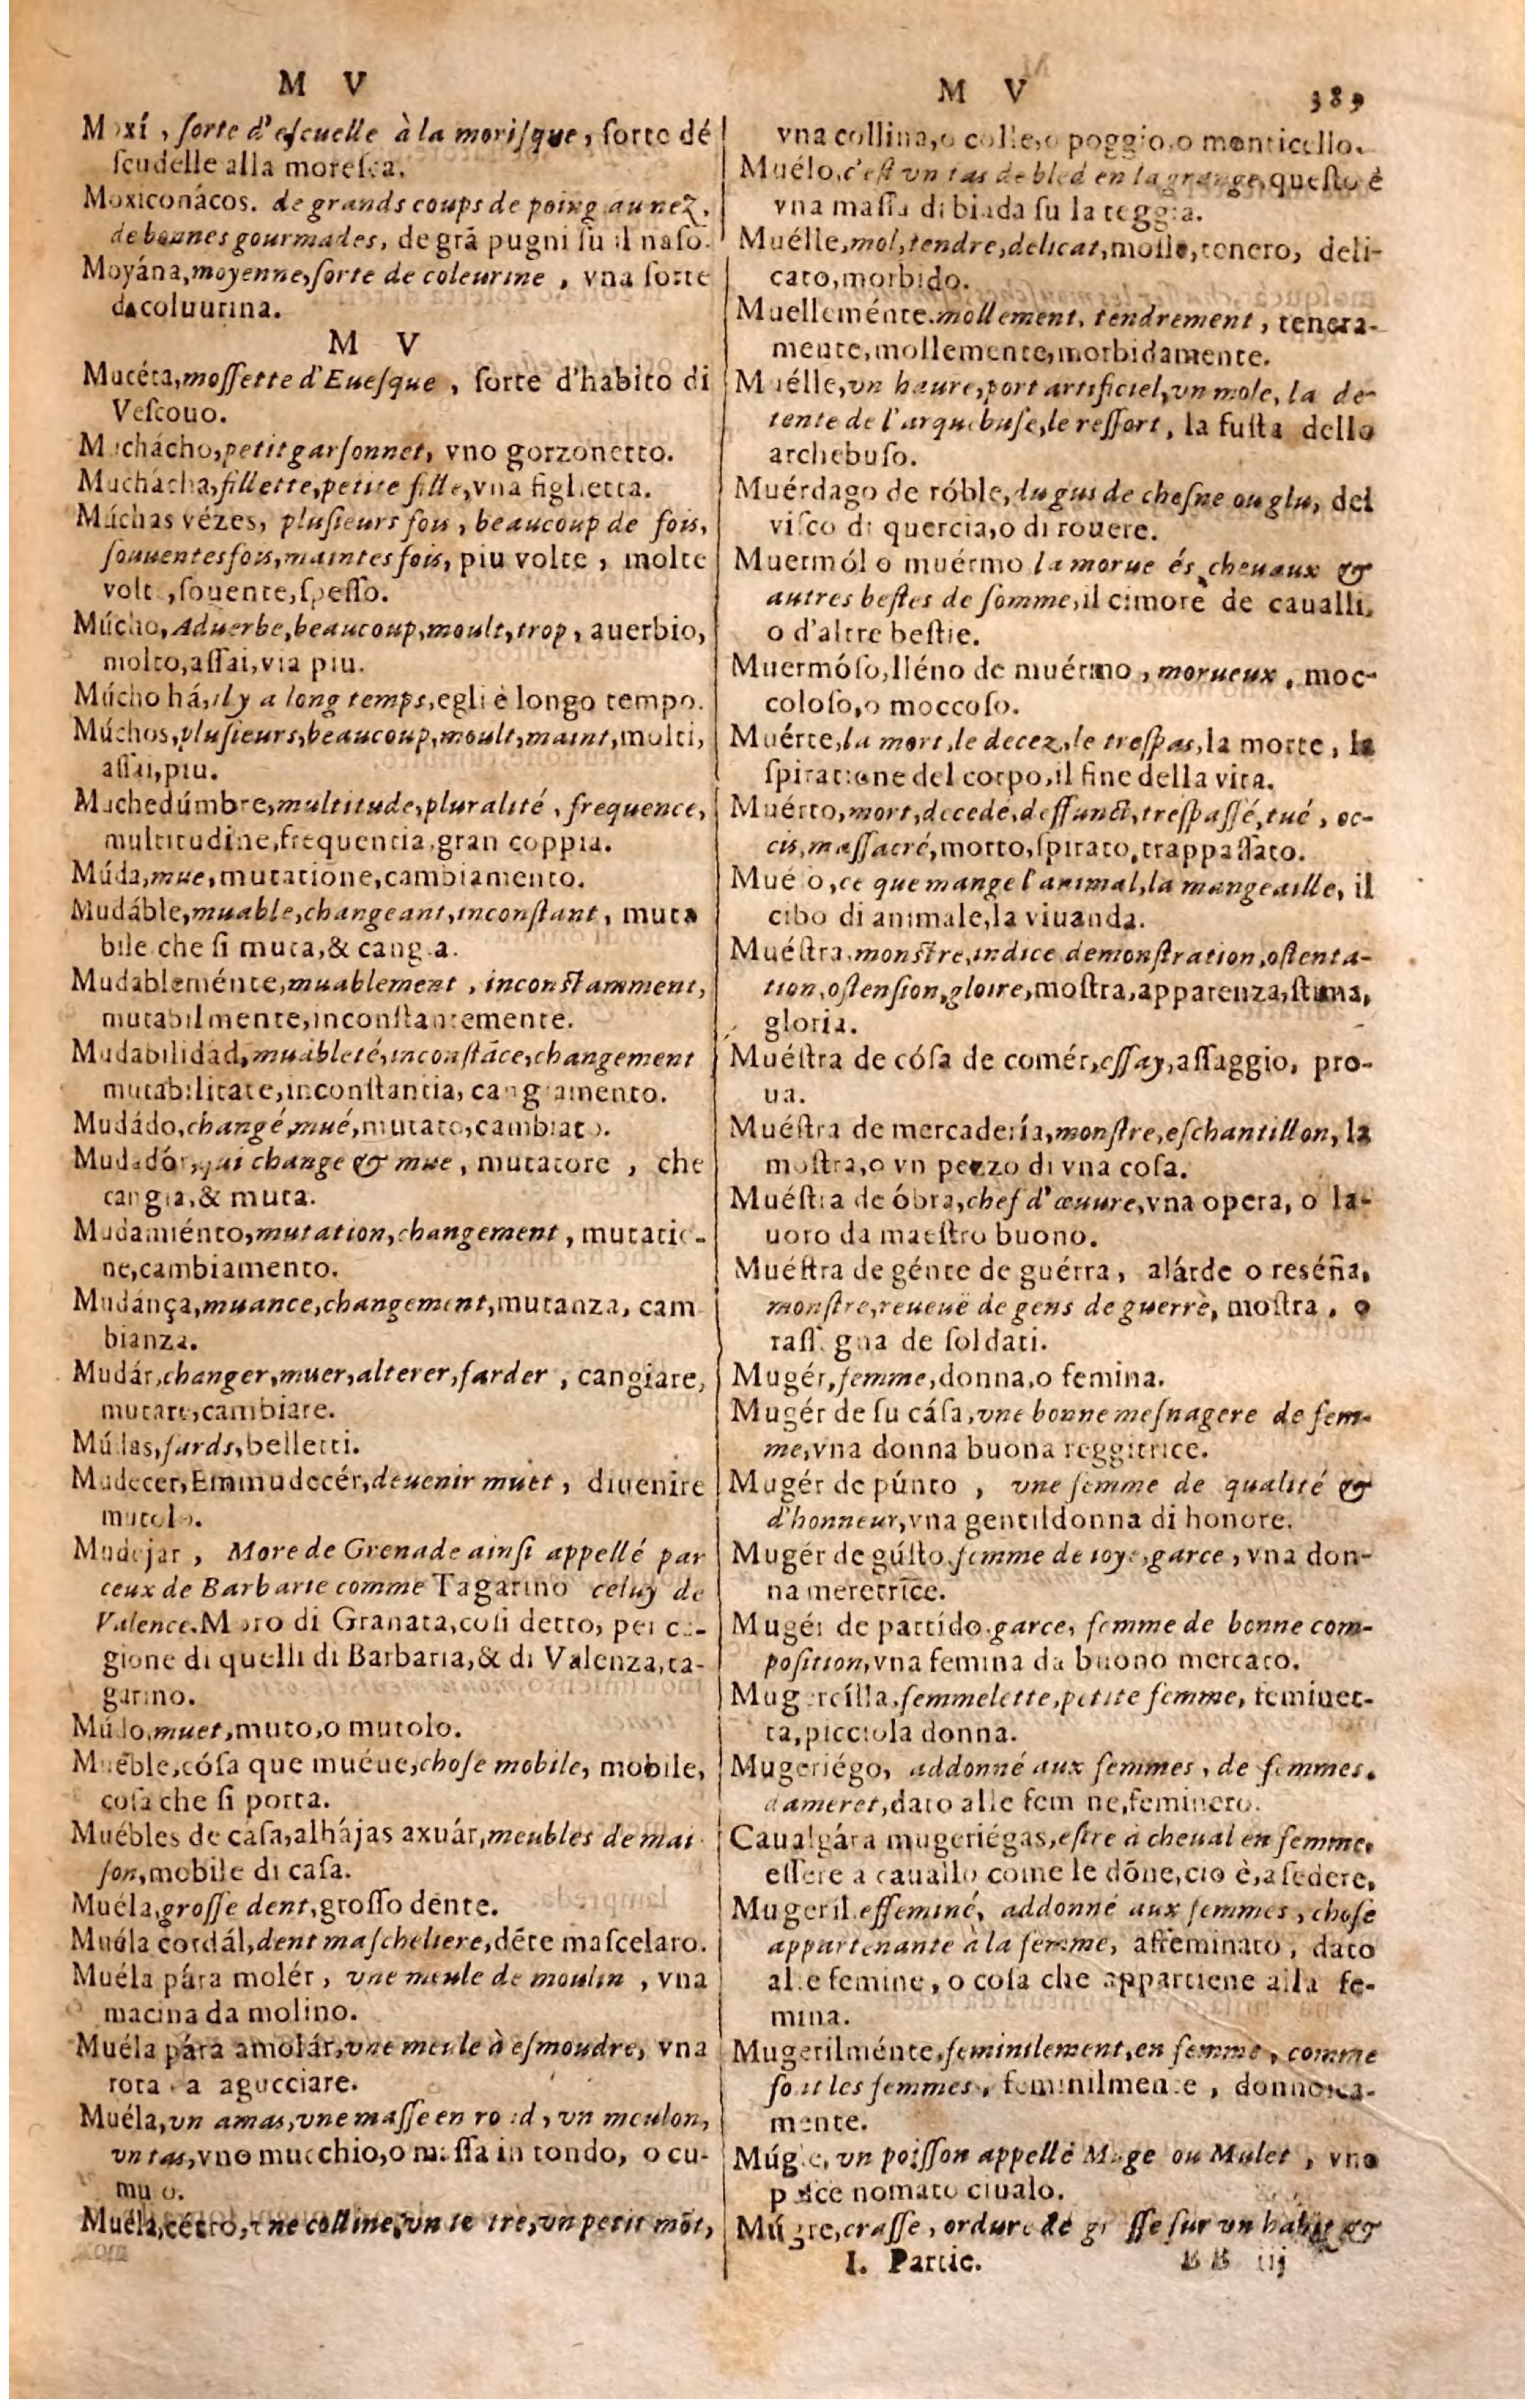 M V
Moxí, ſorte d'eſcuelle à la moriſque, ſorte dé
ſcudelle alla moreſca.
Moxiconácos. de grands coups de poing au nez,
de bonnes gourmades, de grã pugni ſu il naſo.
Moyána, moyenne, ſorte de coleurine, vna ſorte
da coluurina.
M V
Mucéta, moſſette d'Eueſque, ſorte d'habito di
Veſcouo.
Muchácho, petit garſonnet, vno gorzonetto.
Muchácha, fillette, petite fille, vna figlietta.
Múchas vézes, pluſieurs fois, beaucoup de fois,
ſouuentesfois, maintesfois, piu volte, molte
volte, ſouente, ſpeſſo.
Múcho, Aduerbe, beaucoup, moult, trop, auerbio,
molto, aſſai, via piu.
Múcho há, il y a long temps, egli è longo tempo.
Múchos, pluſieurs, beaucoup, moult, maint, molti,
aſſai, piu.
Muchedúmbre, multitude, pluralité, frequence,
multitudine, frequentia, gran coppia.
Múda, mue, mutatione, cambiamento.
Mudáble, muable, changeant, inconſtant, muta
bile che ſi muta, & cangia.
Mudableménte, muablement, inconſtamment,
mutabilmente, inconſtantemente.
Mudabilidád, muableté, inconſtãce, changement
mutabilitate, inconſtantia, cangiamento.
Mudádo, changé, mué, mutato, cambiato.
Mudadór, qui change & mue, mutatore, che
cangia, & muta.
Mudamiénto, mutation, changement, mutatio-
ne, cambiamento.
Mudánça, muance, changement, mutanza, cam
bianza.
Mudár, changer, muer, alterer, farder, cangiare,
mutare, cambiare.
Múdas, fards, belletti.
Mudecer, Emmudecér, deuenir muet, diuenire
mutolo.
Mudejar, More de Grenade ainſi appellé par
ceux de Barbarie comme Tagarino celuy de
Valence. Moro di Granata, coſi detto, per ca-
gione di quelli di Barbaria, & di Valenza, ta-
garino.
Múdo, muet, muto, o mutolo.
Muéble, cóſa que muéue, choſe mobile, mobile,
coſa che ſi porta.
Muébles de caſa, alhájas axuár, meubles de mai
ſon, mobile di caſa.
Muéla, groſſe dent, groſſo dente.
Muéla cordál, dent maſcheliere, dẽte maſcelaro.
Muéla pára molér, vne meule de moulin, vna
macina da molino.
Muéla pára amolár, vne meule à eſmoudre, vna
rota da agucciare.
Muéla, vn amas, vne maſſe en rond, vn meulon,
vn tas, vno mucchio, o maſſa in tondo, o cu-
mulo.
Muéla, cérro, vne colline, vn tertre, vn petit mõt,
M V 389
vna collina, o colle, o poggio, o monticello.
Muélo, c'eſt vn tas de bled en la grange, queſto è
vna maſſa di biada ſu la teggia.
Muélle, mol, tendre, delicat, molle, tenero, deli-
cato, morbido.
Muelleménte. mollement, tendrement, tenera-
mente, mollemente, morbidamente.
Muélle, vn haure, port artificiel, vn mole, la de-
tente de l'arquebuſe, le reſſort, la fuſta dello
archebuſo.
Muérdago de róble, du gui de cheſne ou glu, del
viſco di quercia, o di rouere.
Muermól o muérmo la morue és cheuaux &
autres beſtes de ſomme, il cimore de caualli,
o d'altre beſtie.
Muermóſo, lléno de muérmo, morueux, moc-
coloſo, o moccoſo.
Muérte, la mort, le decez, le treſpas, la morte, la
ſpiratione del corpo, il fine della vita.
Muérto, mort, decedé, deffunct, treſpaſſé, tué, oc-
cis, maſſacré, morto, ſpirato, trappaſſato.
Mué o, ce que mange l'animal, la mangeaille, il
cibo di animale, la viuanda.
Muéſtra, monſtre, indice demonſtration, oſtenta-
tion, oſtenſion, gloire, moſtra, apparenza, ſtima,
gloria.
Muéſtra de cóſa de comér, eſſay, aſſaggio, pro-
ua.
Muéſtra de mercadería, monſtre, eſchantillon, la
moſtra, o vn pezzo di vna coſa.
Muéſtra de óbra, chef d'œuure, vna opera, o la-
uoro da maeſtro buono.
Muéſtra de génte de guérra, alárde o reséña,
monſtre, reueuë de gens de guerrè, moſtra, o
raſſegna de ſoldati.
Mugér, femme, donna, o femina.
Mugér de ſu cáſa, vne bonne meſnagere de fem-
me, vna donna buona reggitrice.
Mugér de púnto, vne femme de qualité &
d'honneur, vna gentildonna di honore.
Mugér de gúſto, femme de ioye, garce, vna don-
na meretrice.
Mugér de partído. garce, femme de bonne com-
poſition, vna femina da buono mercato.
Mugercílla, femmelette, petite femme, feminet-
ta, picciola donna.
Mugeriégo, addonné aux femmes, de femmes.
dameret, dato alle femine, feminero.
Caualgár a mugeriégas, eſtre à cheual en femme,
eſſere a cauallo come le dõne, cio è, a ſedere.
Mugeríl. effeminé, addonné aux femmes, choſe
appartenante à la femme, affeminato, dato
alle femine, o coſa che appartiene alla fe-
mina.
Mugerilménte, femininlement, en femme, comme
ſont les femmes, feminilmente, donneſca-
mente.
Múgle, vn poiſſon appellé Muge ou Mulet, vno
peſce nomato ciualo.
Múgre, craſſe, ordure de greſſe ſur vn habit &
I. Partie. BB iij